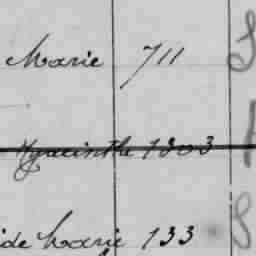 Marie 711
Hyacinthe 1303
ide Marie 133